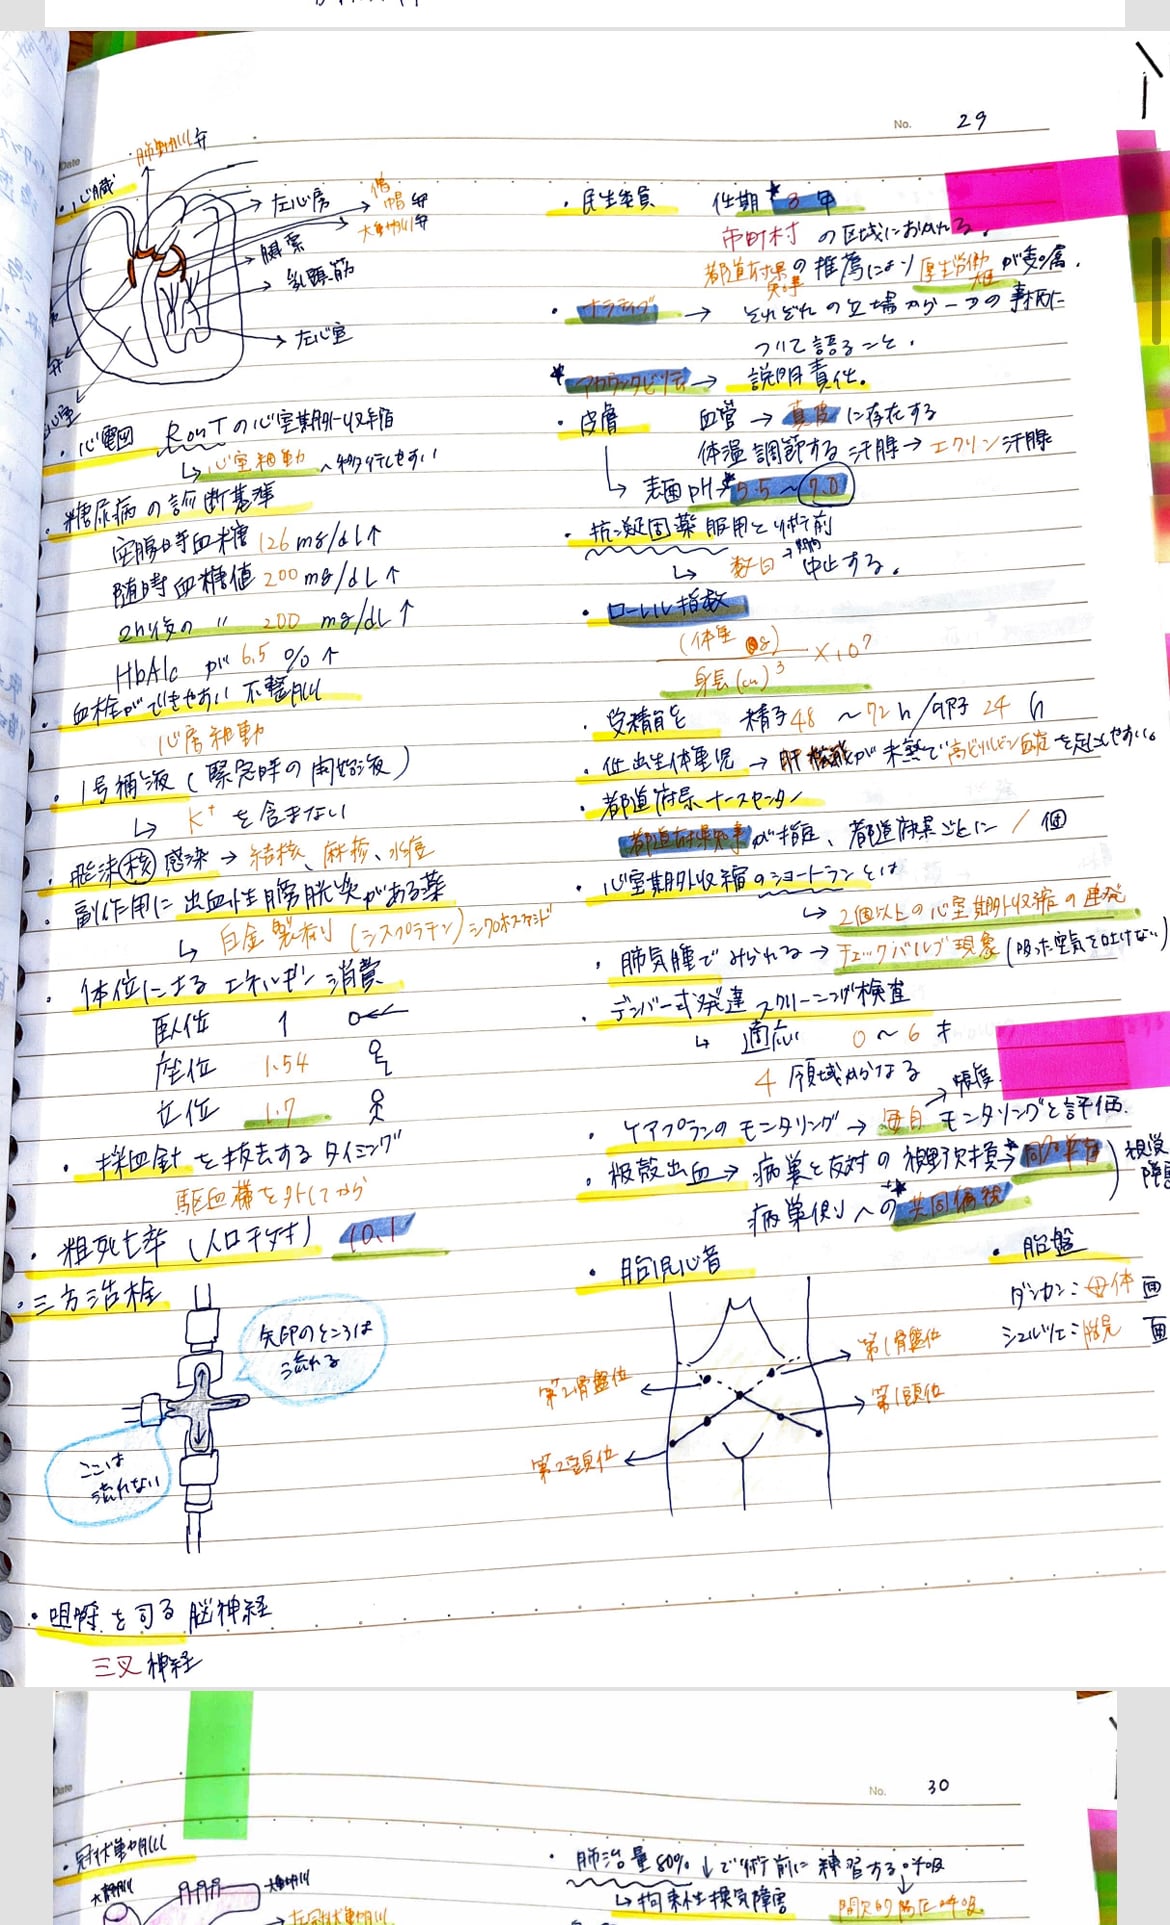 No. 29
Date
・心臓
肺動脈弁
左心房
僧帽弁
大動脈弁
腱索
乳頭筋
左心室
弁
心室
・心電図 R on Tの心室期外収縮
↳心室細動へ移行しやすい
・糖尿病の診断基準
空腹時血糖 126 mg/dl↑
随時血糖値 200 mg/dL↑
2h後の 〃 200 mg/dL↑
HbA1c が 6.5 %↑
・血栓ができやすい不整脈
心房細動
・1号補液(緊急時の開始液)
↳ K⁺ を含まない
・飛沫核感染→結核、麻疹、水痘
・副作用に出血性膀胱炎がある薬
↳ 白金製剤(シスプラチン)シクロホスファミド
・体位によるエネルギー消費
臥位 1
座位 1.54
立位 1.7
・採血針を抜去するタイミング
駆血帯を外してから
・粗死亡率(人口千対) 10.1
・三方活栓
矢印のところは
流れる
ここは
流れない
・咀嚼を司る脳神経
三叉神経
・民生委員 任期 *3年
市町村の区域におかれる。
都道府県知事の推薦により厚生労働大臣が委嘱.
・ナラティブ → それぞれの立場から一つの事柄に
ついて語ること.
*アカウンタビリティ→ 説明責任。
・皮膚 血管→真皮に存在する
体温調節する汗腺→エクリン汗腺
↳ 表面pH*5.5〜7.0
・抗凝固薬服用と術前
↳ 数日→期間 中止する。
・ローレル指数
(体重 g)
身長(cm)³ ×10⁷
・受精能 精子48〜72h/卵子24h
・低出生体重児→肝機能が未熟で高ビリルビン血症を起こしやすい。
・都道府県ナースセンター
都道府県知事が指定、都道府県ごとに1個
・心室期外収縮のショートランとは
↳ 2個以上の心室期外収縮の連発
・肺気腫でみられる→チェックバルブ現象(吸った空気を吐けない)
・デンバー式発達スクリーニング検査
↳ 適応 0〜6才
4領域からなる
・ケアプランのモニタリング→毎日モニタリングと評価.
→頻度.
・被殻出血→病巣と反対の視野欠損*同名半盲
病巣側への*共同偏視
視覚障害
・胎児心音
第1骨盤位
第2骨盤位
第1頭位
第2頭位
・胎盤
ダンカン:母体面
シュルツェ:胎児面
Date
No. 30
・冠状動脈
大静脈
大動脈
→左冠状動脈
・肺活量80%↓で術前に練習する呼吸
↳拘束性換気障害
間欠的陽圧呼吸